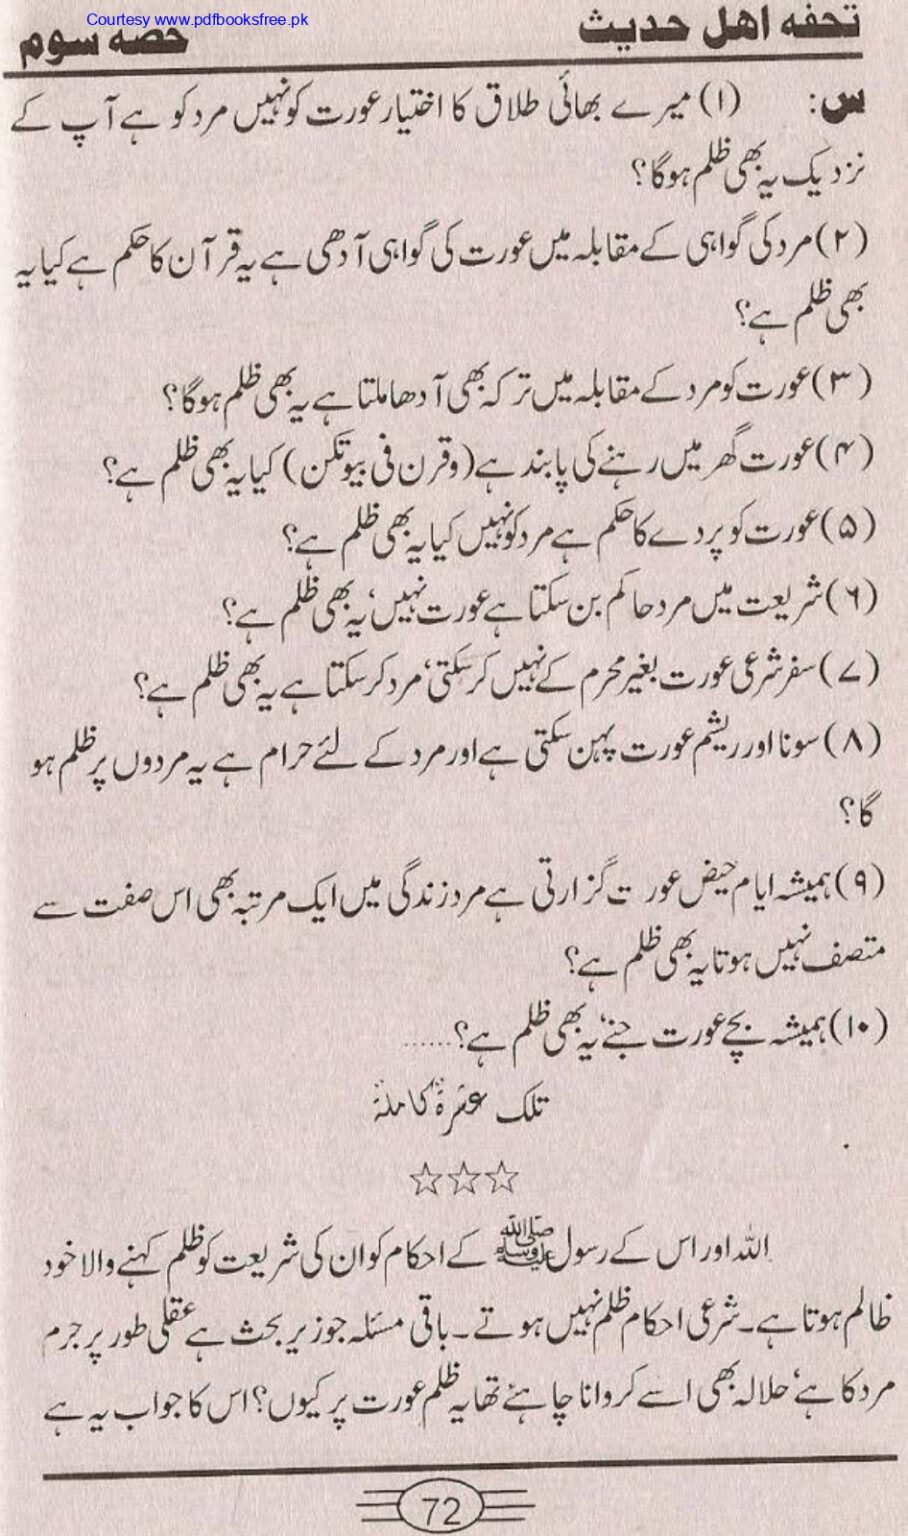 Courtesy www.pdfbooksfree.pk
تحفه اهل حدیث
حصه سوم
س: (۱) میرے بھائی طلاق کا اختیار عورت کو نہیں مرد کو ہے آپ کے
نزدیک یہ بھی ظلم ہوگا؟
(۲) مرد کی گواہی کے مقابلہ میں عورت کی گواہی آدھی ہے یہ قرآن کا حکم ہے کیا یہ
بھی ظلم ہے؟
(۳) عورت کو مرد کے مقابلہ میں ترکہ بھی آدھا ملتا ہے یہ بھی ظلم ہوگا؟
(۴) عورت گھر میں رہنے کی پابند ہے (وقرن فی بیوتکن) کیا یہ بھی ظلم ہے؟
(۵) عورت کو پردے کا حکم ہے مرد کو نہیں کیا یہ بھی ظلم ہے؟
(۶) شریعت میں مرد حاکم بن سکتا ہے عورت نہیں، یہ بھی ظلم ہے؟
(۷) سفر شرعی عورت بغیر محرم کے نہیں کر سکتی، مرد کر سکتا ہے یہ بھی ظلم ہے؟
(۸) سونا اور ریشم عورت پہن سکتی ہے اور مرد کے لئے حرام ہے یہ مردوں پر ظلم ہو
گا؟
(۹) ہمیشہ ایام حیض عورت گزارتی ہے مرد زندگی میں ایک مرتبہ بھی اس صفت سے
متصف نہیں ہوتا یہ بھی ظلم ہے؟
(۱۰) ہمیشہ بچے عورت جنے، یہ بھی ظلم ہے؟......
تلک عشرۃ کاملۃ
☆☆☆
اللہ اور اس کے رسول ﷺ کے احکام کو ان کی شریعت کو ظلم کہنے والا خود
ظالم ہوتا ہے۔ شرعی احکام ظلم نہیں ہوتے۔ باقی مسئلہ جو زیر بحث ہے عقلی طور پر جرم
مرد کا ہے، حلالہ بھی اسے کروانا چاہئے تھا یہ ظلم عورت پر کیوں؟ اس کا جواب یہ ہے
72